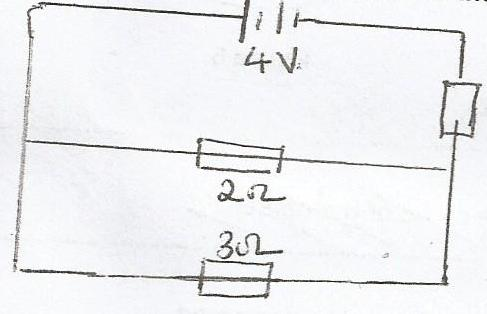 4V
2Ω
3Ω